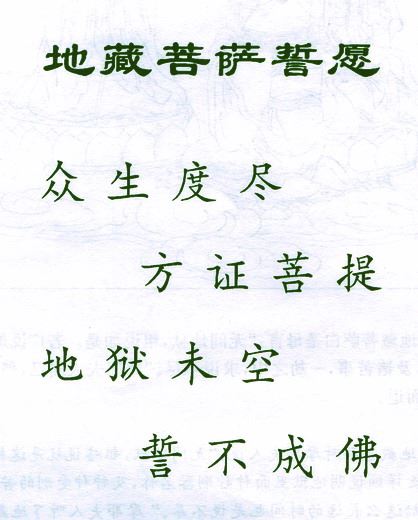 地藏菩萨誓愿
众生度尽
方证菩提
地狱未空
誓不成佛